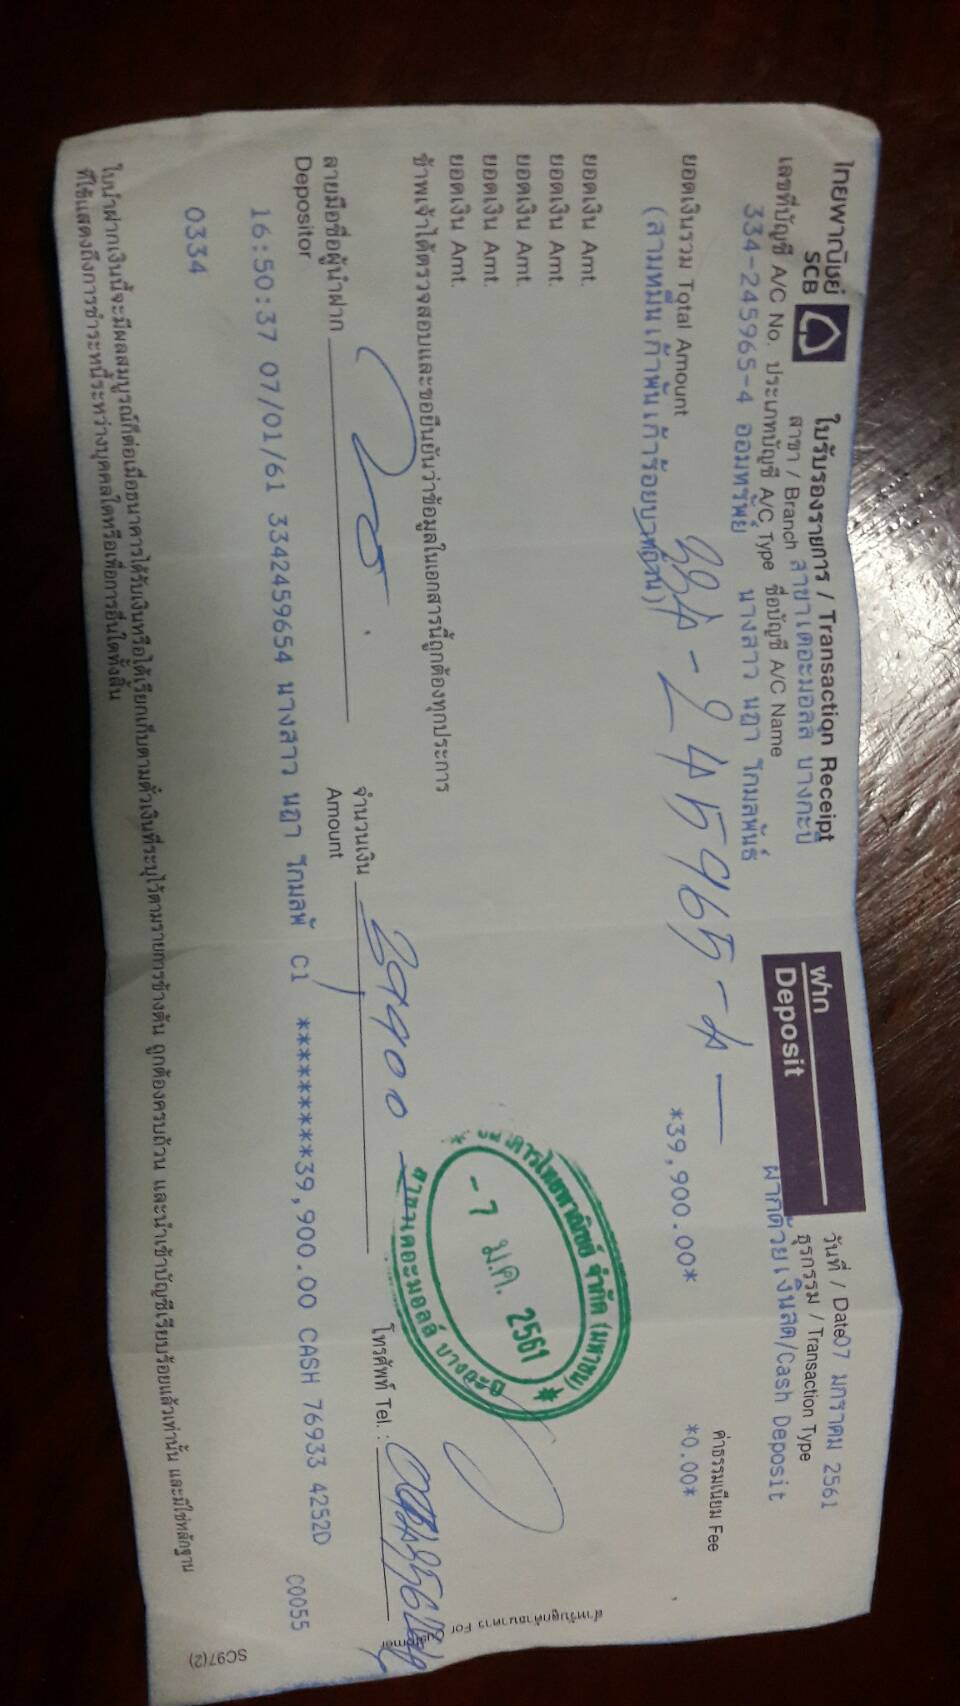 ไทยพาณิชย์
SCB
ใบรับรองรายการ / Transaction Receipt
สาขา / Branch สาขาเดอะมอลล์ บางกะปิ
ฝาก
Deposit
วันที่ / Date07 มกราคม 2561
ธุรกรรม / Transaction Type
ฝากด้วยเงินสด/Cash Deposit
เลขที่บัญชี A/C No. ประเภทบัญชี A/C Type ชื่อบัญชี A/C Name
334-245965-4 ออมทรัพย์ นางสาว นฎา โกมลพันธ์
334-245965-4-
ค่าธรรมเนียม Fee
ยอดเงินรวม Total Amount *39,900.00* *0.00*
(สามหมื่นเก้าพันเก้าร้อยบาทถ้วน)
ยอดเงิน Amt.
ยอดเงิน Amt.
ยอดเงิน Amt.
ยอดเงิน Amt.
ยอดเงิน Amt.
ธนาคารไทยพาณิชย์ จำกัด (มหาชน)
-7 ม.ค. 2561
สาขาเดอะมอลล์ บางกะปิ
ข้าพเจ้าได้ตรวจสอบและขอยืนยันว่าข้อมูลในเอกสารนี้ถูกต้องทุกประการ
ลายมือชื่อผู้นำฝาก
Depositor
จำนวนเงิน 39,900
Amount
โทรศัพท์ Tel. :
16:50:37 07/01/61 3342459654 นางสาว นฎา โกมลพั C1 *********39,900.00 CASH 76933 4252D
C0055
0334
ใบนำฝากเงินนี้จะมีผลสมบูรณ์ก็ต่อเมื่อธนาคารได้รับเงินหรือได้เรียกเก็บตามตั๋วเงินที่ระบุไว้ตามรายการข้างต้น ถูกต้องครบถ้วน และนำเข้าบัญชีเรียบร้อยแล้วเท่านั้น และมิใช่หลักฐาน
ที่ใช้แสดงถึงการชำระหนี้ระหว่างบุคคลใดหรือเพื่อการอื่นใดทั้งสิ้น
สำหรับลูกค้าธนาคาร For Customer
SC97(2)